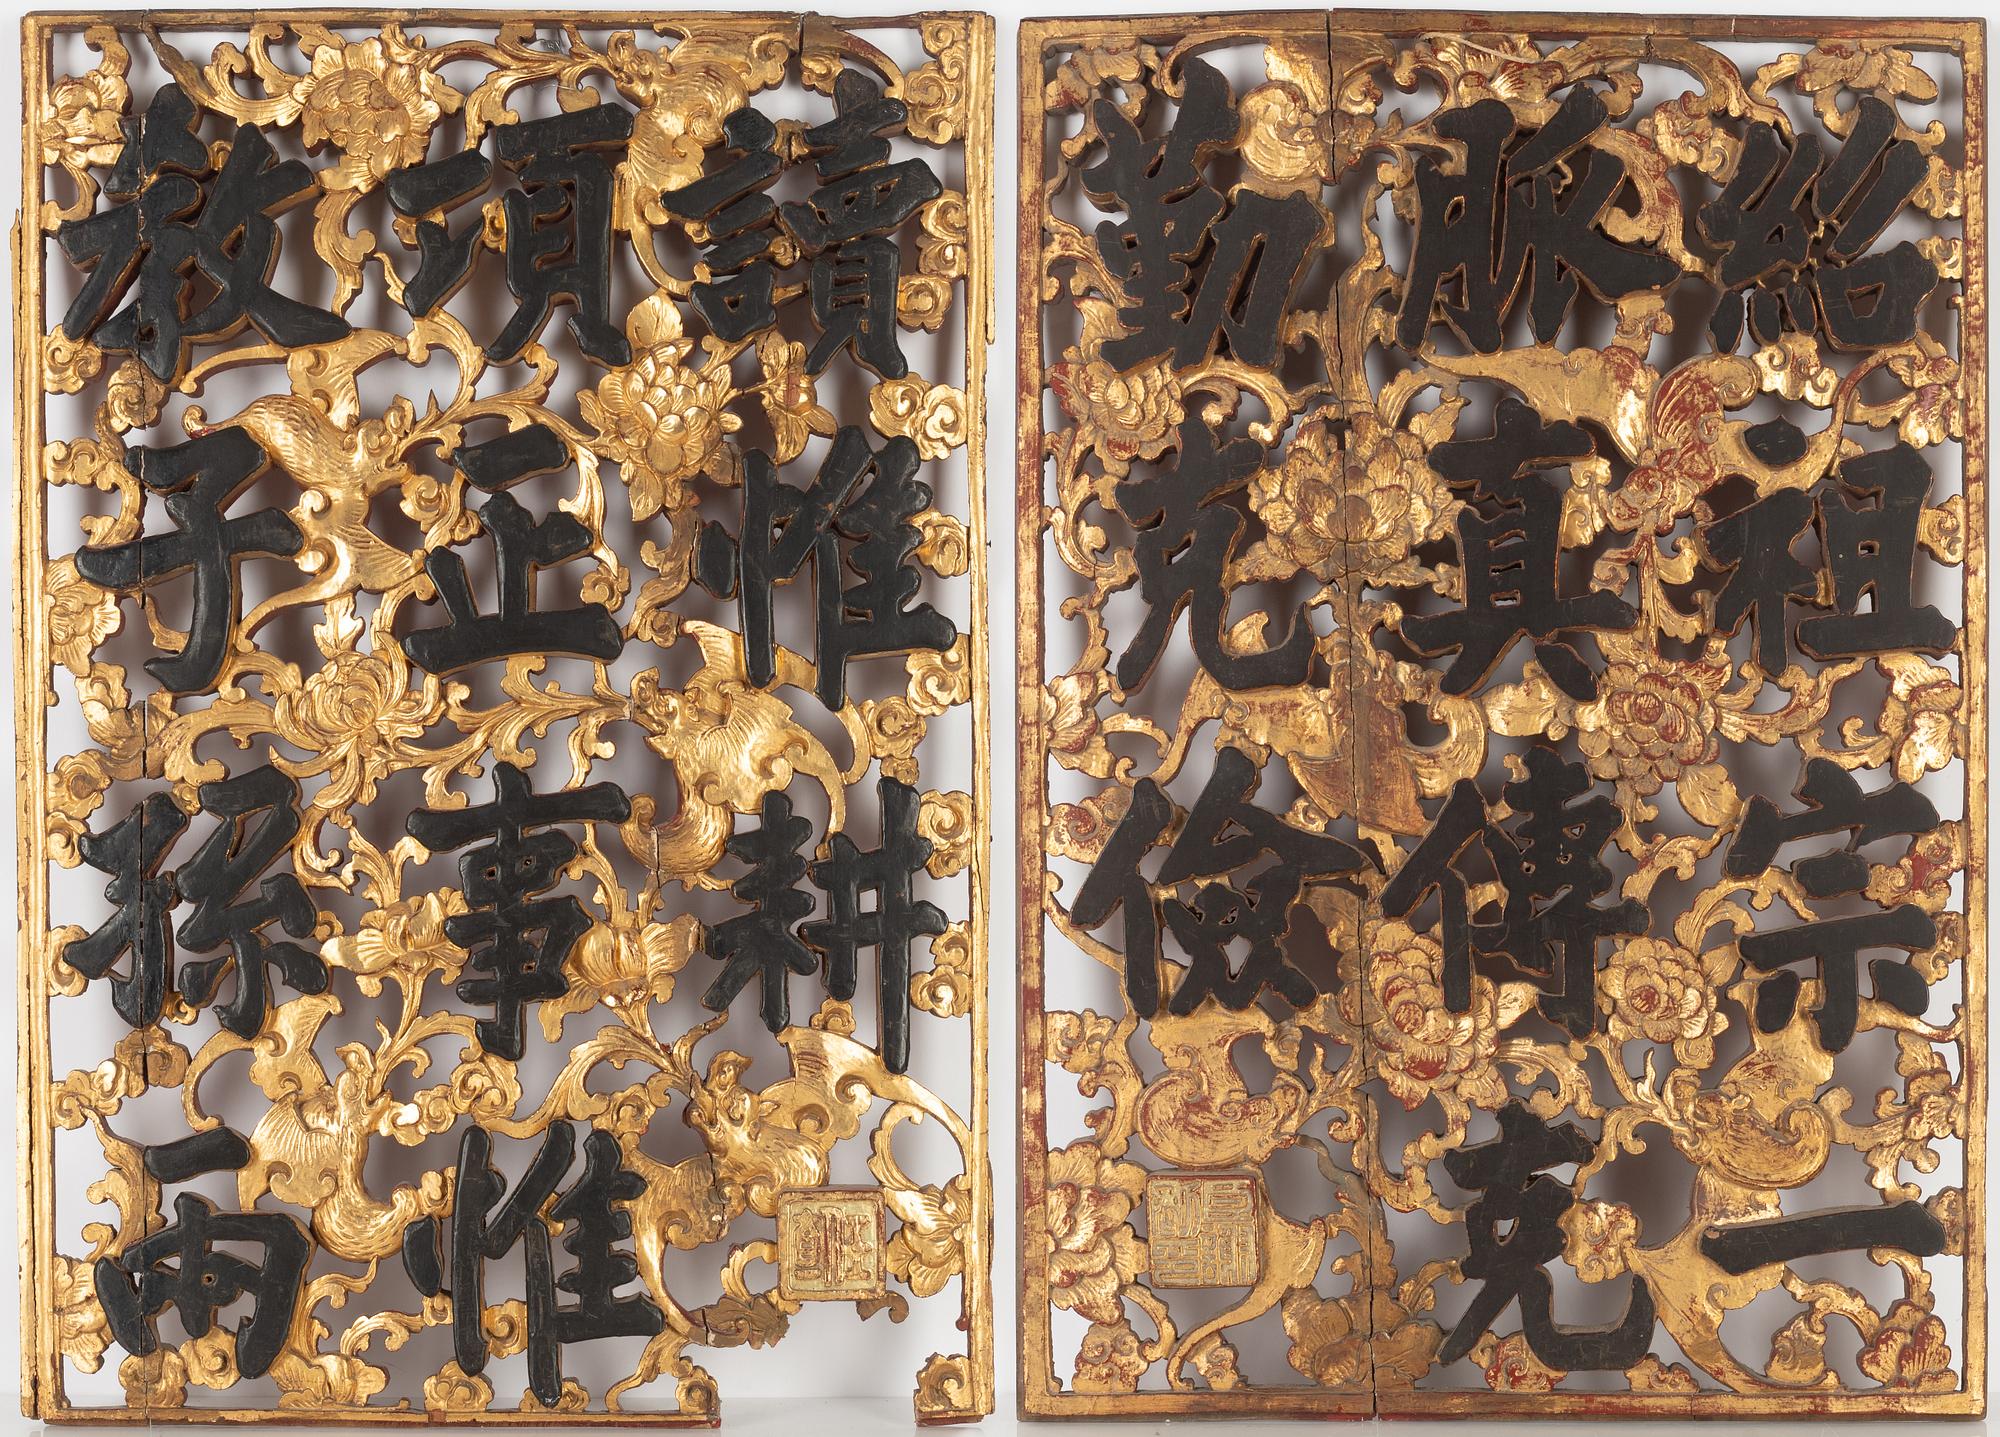 紹祖宗一
脈真傳克
勤克儉
教子孫兩
項正事惟
讀惟耕